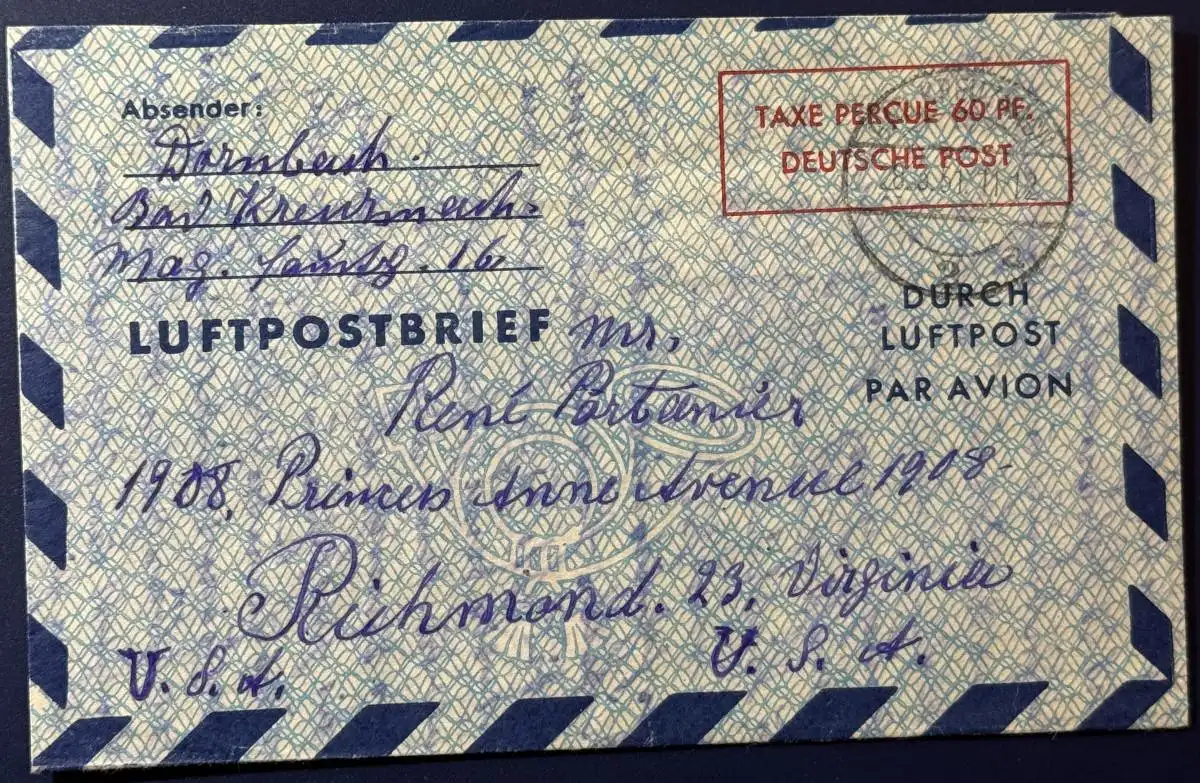 Absender:
Dornbach.
Bad Kreuznach.
Mag. 16
TAXE PERÇUE 60 PF.
DEUTSCHE POST
LUFTPOSTBRIEF
DURCH
LUFTPOST
PAR AVION
Mr,
René Portanier
1908, Princess Anne Avenue 1908-
Richmond. 23, Virginia
U. S. A.
U. S. A.